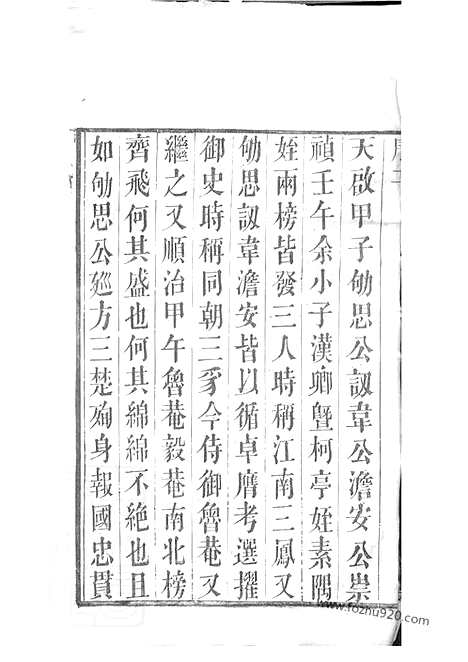 天啟甲子劬思公訒韋公澹安公崇
禎壬午余小子漢卿曁柯亭姪素隅
姪兩榜皆發三人時稱江南三鳳又
劬思訒韋澹安皆以循卓膺考選擢
御史時稱同朝三豸今侍御魯菴又
繼之又順治甲午魯菴毅菴南北榜
齊飛何其盛也何其綿綿不絶也且
如劬思公廵方三楚殉身報國忠貫
www.fozhu920.com